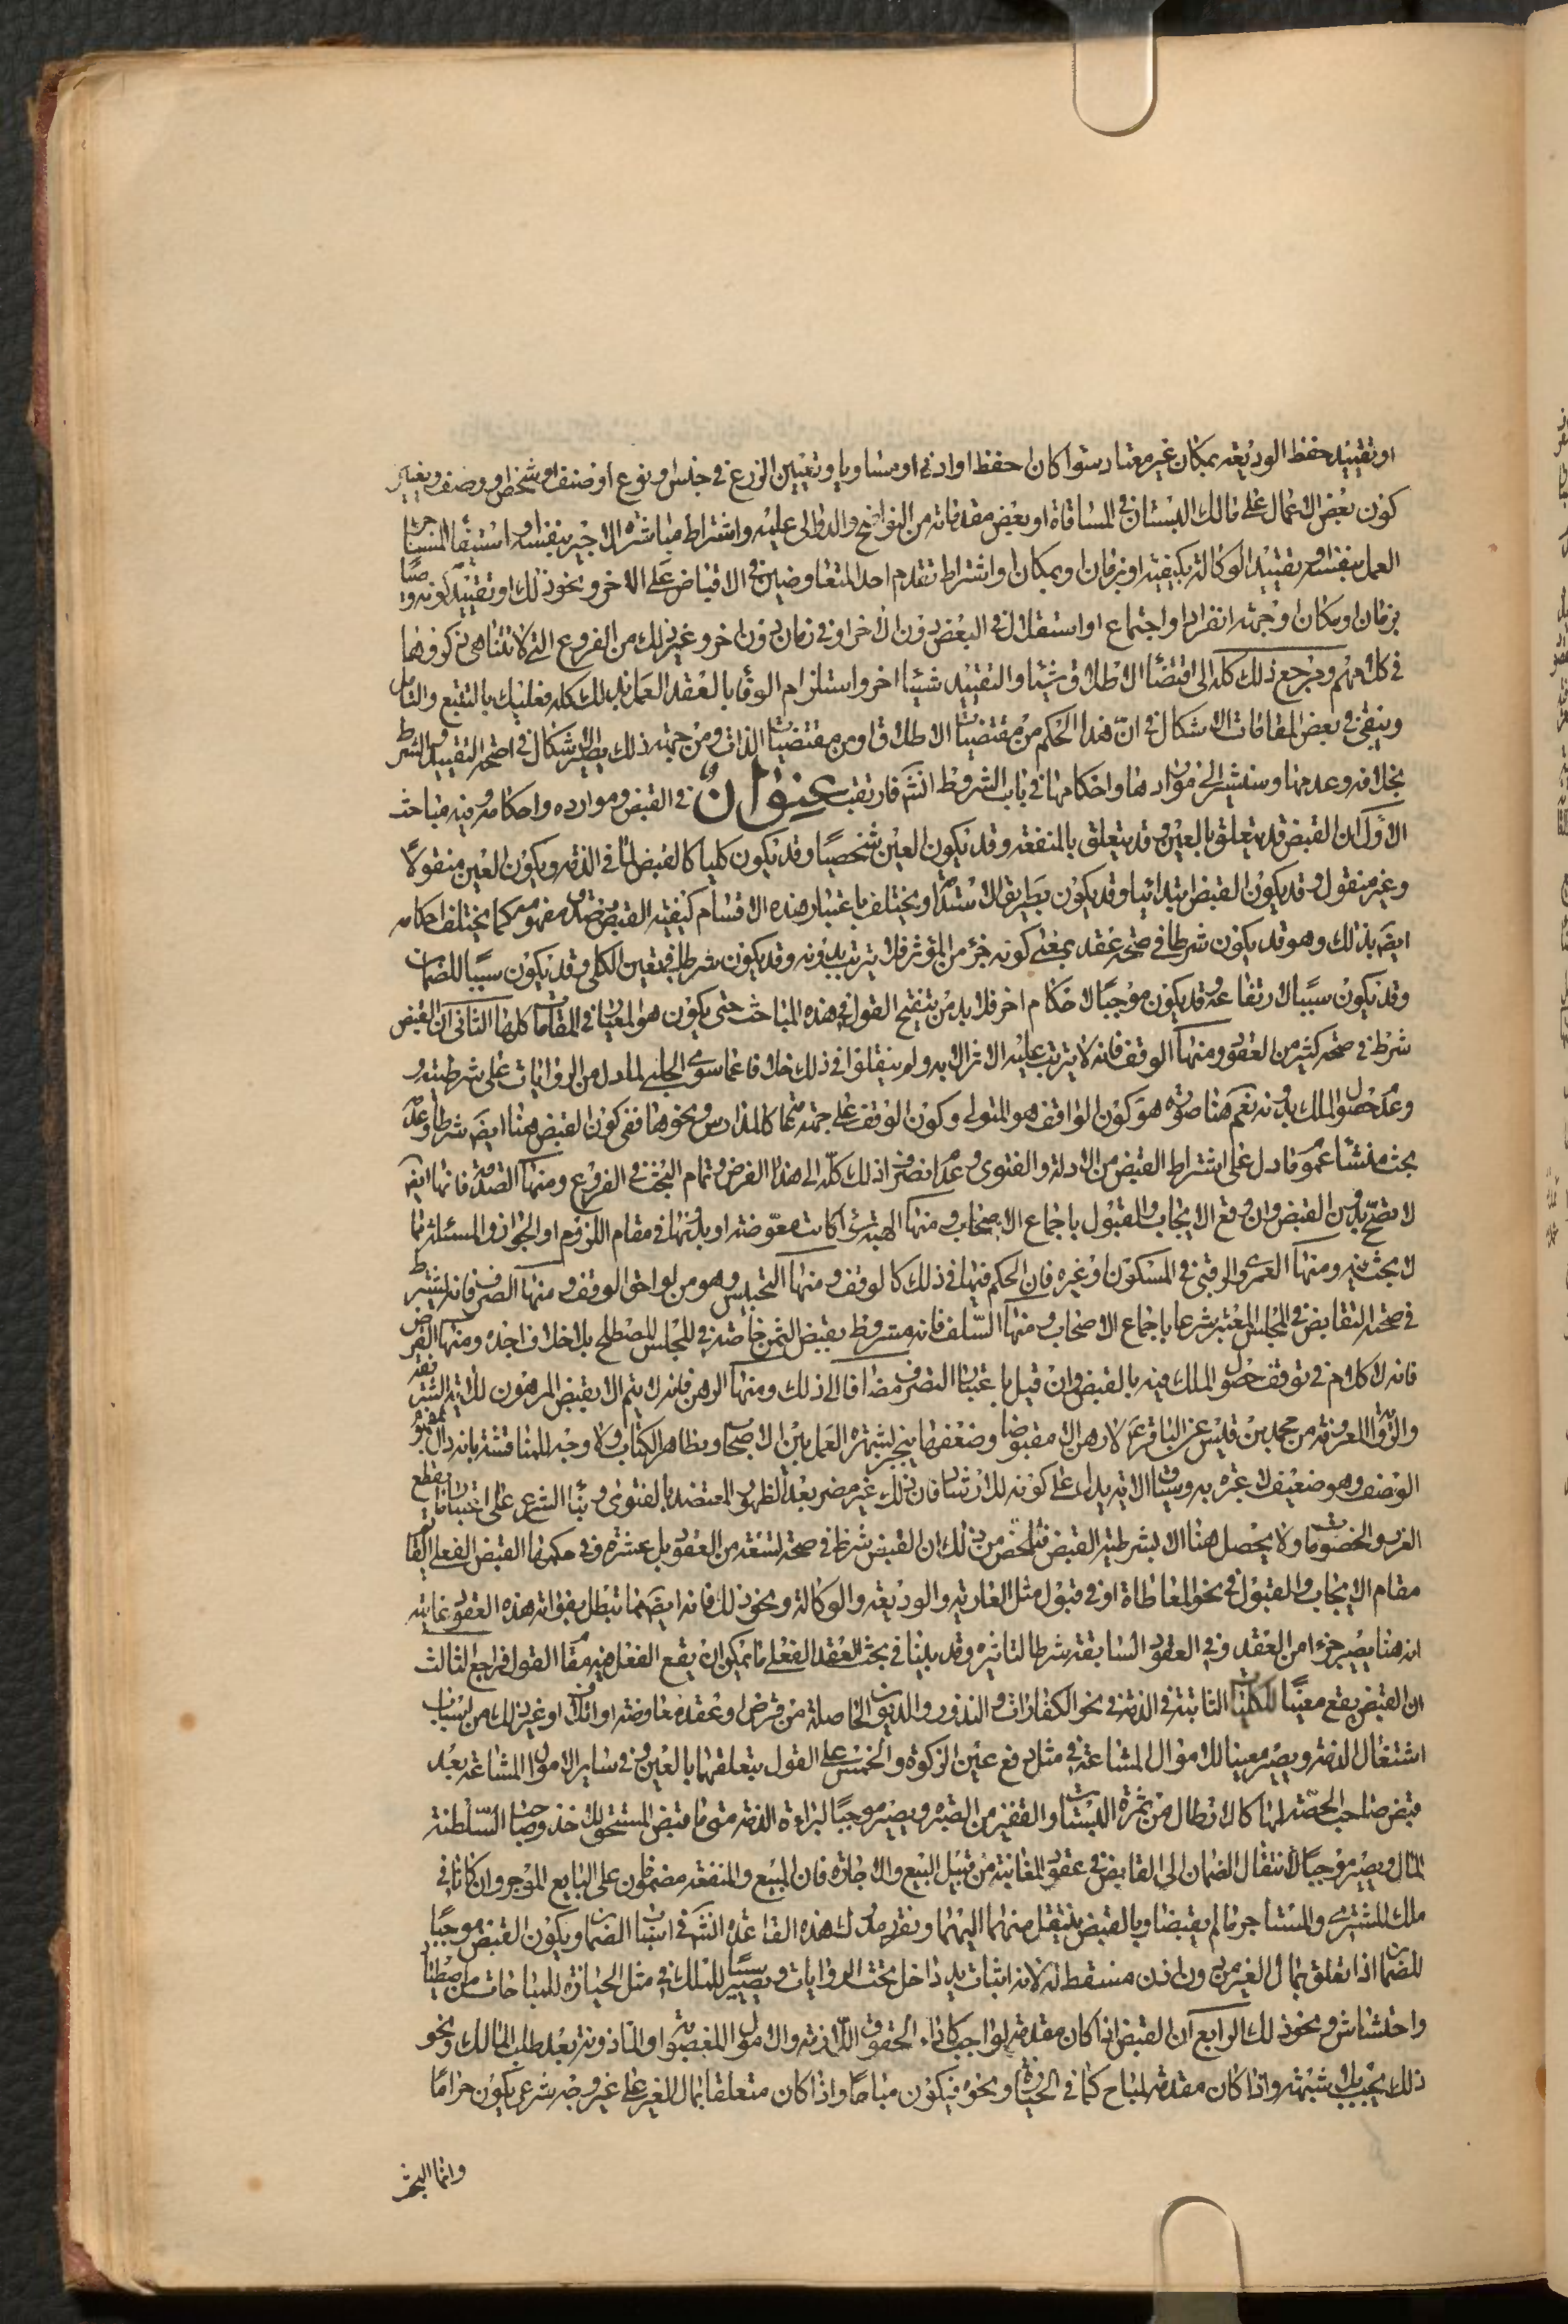 او تقييد حفظ الوديعة بمكان غير معتاد سواء كان احفظ او ادنى او مساويا وتعيين الزرع في جنس او نوع او صنف او شخص او وصف وتعيير
كون بعض الاعمال على مالك البستان في المساقاة او بعض مقدماته من النواضح والدوالى عليه واشتراط مباشرة الاجير بنفسه او استيفاء المستاجر
العمل بنفسه وتقييد الوكالة بكيفية او بزمان او بمكان واشتراط تقدم احد المتعاوضين في الاقباض على الاخر ونحو ذلك او تقييد كونه وصيا
بزمان او مكان او جهة انفرادا واجتماع او استقلال في البعض دون الاخر او في زمان دون اخر وغير ذلك من الفروع التي لا تتناهى مذكور وها
في كلامهم ومرجع ذلك كله الى اقتضاء الاطلاق شيئا والتقييد شيئا اخر واستلزام الوفاء بالعقد العمل بذلك كله فعليك بالتتبع والتامل
ويبقى في بعض المقامات الاشكال في ان هذا الحكم من مقتضيات الاطلاق او من مقتضيات الذات ومن جهة ذلك يطرء الاشكال في اصحة التقييد والشرط
بخلافه وعدمها وسنشير الى مواردها واحكامها في باب الشروط انشاء فارتقب عنوان في القبض وموارده واحكامه وفيه مباحث
الاول ان القبض قد يتعلق بالعين وقد يتعلق بالمنفعة وقد يكون العين شخصيا وقد يكون كليا كالقبض لما في الذمة ويكون العين منقولا
وغير منقول وقد يكون القبض ابتدائيا وقد يكون بطريق الاستدامة ويختلف باعتبار هذه الاقسام كيفية القبض وصدق مفهومه كما يختلف احكامه
ايضا بذلك وهو قد يكون شرطا في صحة عقد بمعنى كونه جزء من المؤثر فلا يترتب بدونه وقد يكون شرطا في تعين الكلى وقد يكون سببا للضمان
وقد يكون سببا لارتفاعه وقد يكون موجبا لاحكام اخر فلا بد من تنقيح القول في هذه المباحث حتى يكون هو المعيار في المقامات كلها الثانى ان القبض
شرط في صحة كثير من العقود ومنها الوقف فانه لا يترتب عليه الاثر الا به ولم ينقلوا في ذلك خلافا عما سوى الحلبى لما دل من الروايات على شرطيته
وعدم حصول الملك بدونه نعم هنا صورة هو كون الواقف هو المتولى وكون الوقف على جهة عامة كالمدارس ونحوها ففى كون القبض هنا ايضا شرطا وعدمه
بحث منشاء عموم ما دل على اشتراط القبض من الادلة والفتوى وعدم انصراف ذلك كله الى هذا الفرض وتمام البحث في الفروع ومنها الصدقة فانها ايضا
لا تصح بدون القبض وان وقع الايجاب والقبول باجماع الاصحاب ومنها الهبة سواء كانت معوضة او بدونها في مقام اللزوم او الجواز والمسئلة مما
لا بحث فيه ومنها العمرى والرقبى في المسكون او غيره فان الحكم فيها في ذلك كالوقف ومنها التحبيس وهو من لواحق الوقف ومنها الصرف فانه يشترط
في صحته التقابض في المجلس المعتبر شرعا باجماع الاصحاب ومنها السلف فانه مشروط بقبض الثمن خاصة في المجلس المصطلح بلا خلاف اجده ومنها القرض
فانه لا كلام في توقف حصول الملك فيه بالقبض وان قيل باعتبار التصرف مضافا الى ذلك ومنها الرهن فانه لا يتم الا بقبض المرهون للاية الشريفة
والرواية المعروفة من محمد بن قيس عن الباقر ع لا رهن الا مقبوضا وضعفها ينجبر بشهرة العمل بين الاصحاب وبظاهر الكتاب ولا وجه للمناقشة بانه دال بمفهوم
الوصف وهو ضعيف لا عبرة به وسياق الاية يدل على كونه للارشاد فان ذلك غير مضر بعد الظهور المعتضد بالفتوى وبناء الشرع على احتياط يقطع
الغرر والخصومات ولا يحصل هنا الا بشرطية القبض فتلخص من ذلك ان القبض شرط في صحة تسعة من العقود بل عشرة وفي حكمها القبض الفعلى القائم
مقام الايجاب والقبول في نحو المعاطاة او في قبول مثل العارية والوديعة والوكالة ونحو ذلك فانه ايضا مما تبطل بفواته هذه العقود غايته
انه هنا يصير جزءا من العقد وفي العقود السابقة شرطا لتاثيره وقد بينا في بحث العقد الفعلى ما يمكن ان يقع الفعل فيه مقام القول فراجع الثالث
ان القبض يقع معينا للكليات الثابتة في الذمة في نحو الكفارات والنذور والديون الحاصلة من قرض او عقد معاوضة او اتلاف او غير ذلك من اسباب
اشتغال الذمة ويصير معينا للاموال المشاعة في مثل دفع عين الزكوة والخمس على القول بتعلقهما بالعين وفي ساير الاموال المشاعة بعد
قبض صاحب الحصة لها كالارطال من ثمرة البستان والقفيز من الصبرة ويصير موجبا لبراءة الذمة متى ما قبض المستحق للاخذ وصاحب السلطنة
المال ويصير موجبا لانتقال الضمان الى القابض في عقود المغابنة من قبيل البيع والاجارة فان المبيع والمنفعة مضمون على البايع الموجر وان كانا في
ملك المشترى والمستاجر ما لم يقبضا وبالقبض ينتقل منهما اليهما ونقرر مدرك هذه القاعدة انشاء في اسباب الضمان ويكون القبض موجبا
للضمان اذا تعلق بمال الغير من دون اذن مسقط له لانه اثبات يد داخل تحت الروايات ويصير سببا للملك في مثل الحيازة للمباحات من اصطياد
واحتشاش ونحو ذلك الرابع ان القبض اذا كان مقدمة لواجب كاداء الحقوق اللازمة والاموال المغصوبة او الماذونة بعد طلب المالك ونحو
ذلك يجب بلا شبهة واذا كان مقدمة لمباح كما في الحيازة ونحوه فيكون مباحا واذا كان متعلقا بمال الغير على غير وجه شرعى يكون حراما
وانما البحث